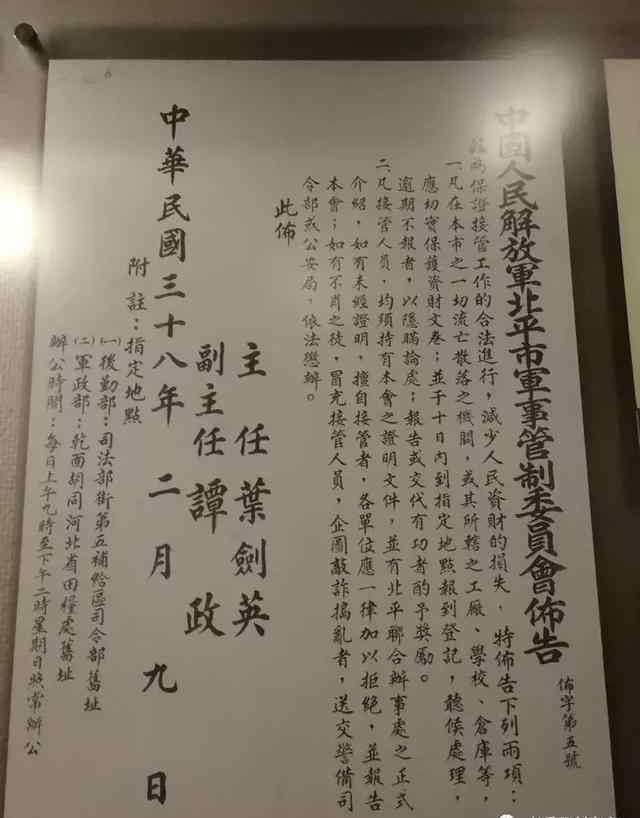 中國人民解放軍北平市軍事管制委員會佈告
佈字第五號
茲為保證接管工作的合法進行，減少人民資財的損失，特佈告下列兩項：
一凡在本市之一切流亡散落之機關，或其所轄之工廠、學校、倉庫等，
應切實保護資財文卷；並于十日內到指定地點報到登記，聽候處理，
逾期不報者，以隱瞞論處；報告或交代有功者酌予獎勵。
二凡接管人員，均須持有本會之證明文件，並有北平聯合辦事處之正式
介紹，如有未經證明，擅自接管者，各單位應一律加以拒絕，並報告
本會；如有不肖之徒，冒充接管人員，企圖敲詐搗亂者，送交警備司
令部或公安局，依法懲辦。
此佈
主任葉劍英
副主任譚政
中華民國三十八年二月九日
附註：指定地點
㈠後勤部：司法部街第五補給區司令部舊址
㈡軍政部：乾面胡同河北省田糧處舊址
辦公時間：每日上午九時至下午二時星期日照常辦公